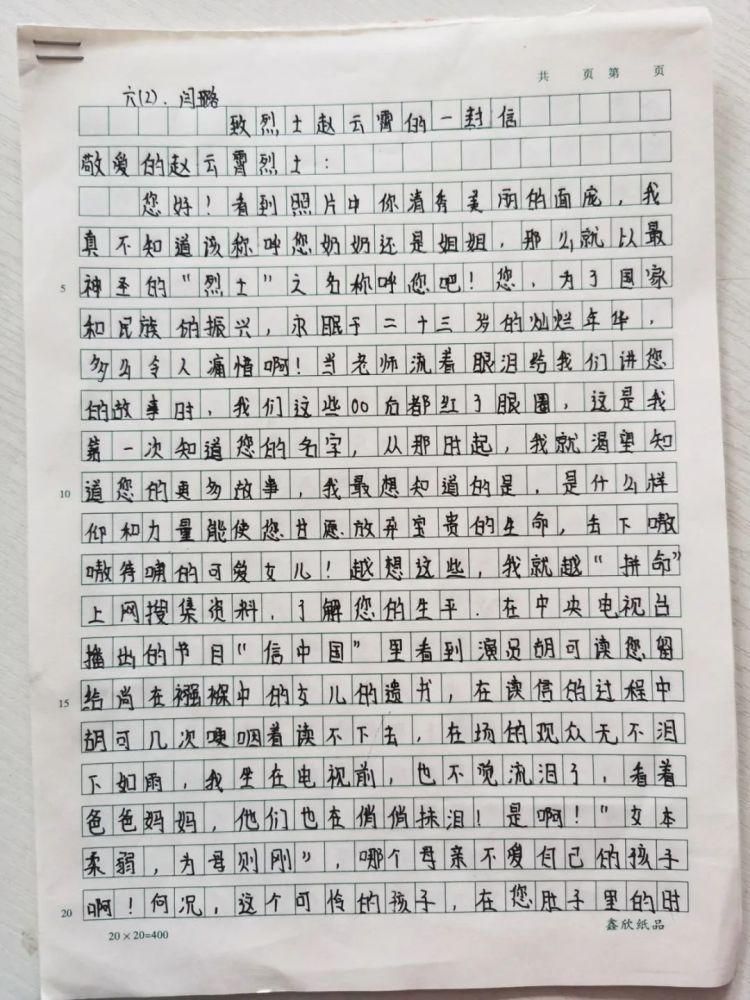 共 页 第 页
六(2).闫璐
致烈士赵云霄的一封信
敬爱的赵云霄烈士:
您好!看到照片中你清秀美丽的面庞,我
真不知道该称呼您奶奶还是姐姐,那么就以最
5 神圣的“烈士”之名称呼您吧!您,为了国家
和民族的振兴,永眠于二十三岁的灿烂年华,
多么令人痛惜啊!当老师流着眼泪给我们讲您
的故事时,我们这些00后都红了眼圈,这是我
第一次知道您的名字,从那时起,我就渴望知
10 道您的更多故事,我最想知道的是,是什么样
的和力量能使您甘愿放弃宝贵的生命,丢下嗷
嗷待哺的可爱女儿!越想这些,我就越“拼命”
上网搜集资料,了解您的生平.在中央电视台
播出的节目“信中国”里看到演员胡可读您留
15 给尚在襁褓中的女儿的遗书,在读信的过程中
胡可几次哽咽着读不下去,在场的观众无不泪
下如雨,我坐在电视前,也不觉流泪了,看着
爸爸妈妈,他们也在悄悄抹泪!是啊!“女本
柔弱,为母则刚”,哪个母亲不爱自己的孩子
20 啊!何况,这个可怜的孩子,在您肚子里的时
20×20=400
鑫欣纸品